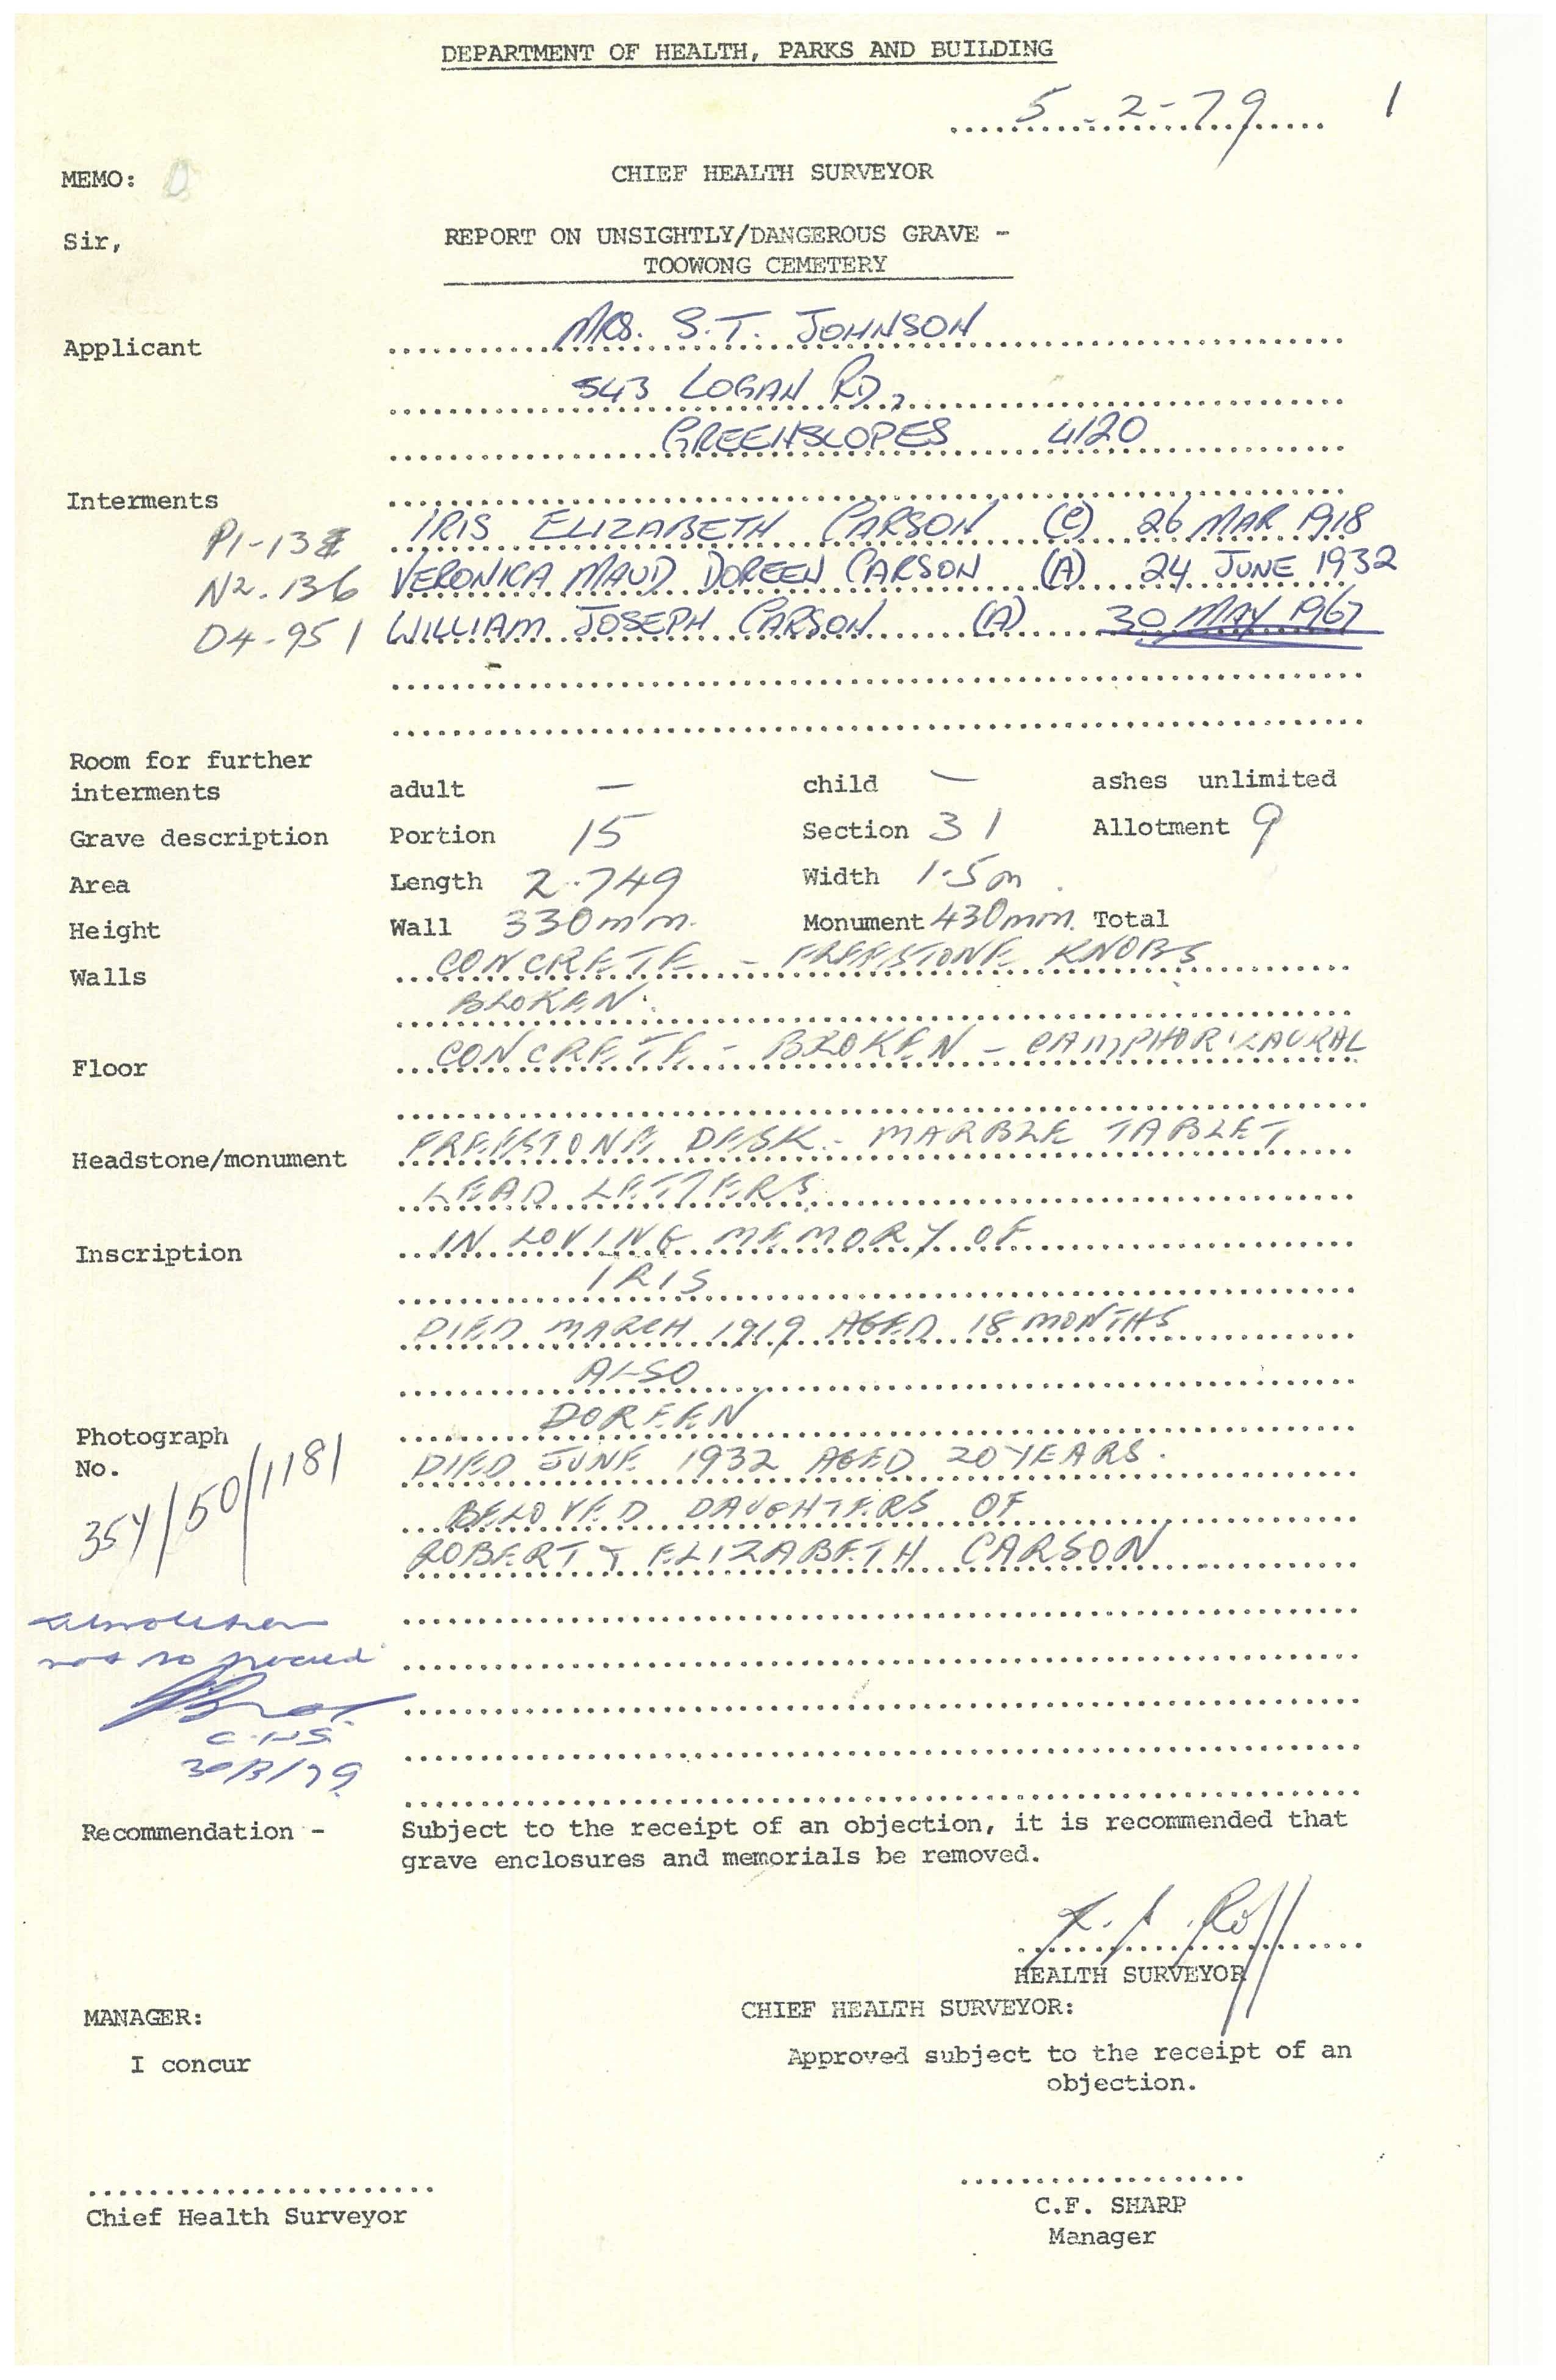 DEPARTMENT OF HEALTH, PARKS AND BUILDING
5-2-79 1
MEMO: D CHIEF HEALTH SURVEYOR
Sir, REPORT ON UNSIGHTLY/DANGEROUS GRAVE -
TOOWONG CEMETERY
Applicant MRS. S.T. JOHNSON
543 LOGAN RD,
GREENSLOPES 4120
Interments
P1-13 IRIS ELIZABETH CARSON (C) 26 MAR 1918
N2.136 VERONICA MAUD DOREEN CARSON (A) 24 JUNE 1932
D4-951 WILLIAM JOSEPH CARSON (A) 30 MAY 1967
Room for further
interments adult — child — ashes unlimited
Grave description Portion 15 Section 31 Allotment 9
Area Length 2.749 Width 1.5m.
Height Wall 330mm. Monument 430mm. Total
Walls CONCRETE - FREESTONE KNOBS
BROKEN.
Floor CONCRETE - BROKEN - CAMPHOR LAURAL
Headstone/monument FREESTONE DESK - MARBLE TABLET
LEAD LETTERS
Inscription IN LOVING MEMORY OF
IRIS
DIED MARCH 1919 AGED 18 MONTHS
ALSO
DOREEN
Photograph
No. DIED JUNE 1932 AGED 20 YEARS.
354/50/1181 BELOVED DAUGHTERS OF
ROBERT & ELIZABETH CARSON
demolition
not to proceed
C.H.S.
30/3/79
Recommendation - Subject to the receipt of an objection, it is recommended that
grave enclosures and memorials be removed.
HEALTH SURVEYOR
MANAGER: CHIEF HEALTH SURVEYOR:
I concur Approved subject to the receipt of an
objection.
Chief Health Surveyor C.F. SHARP
Manager